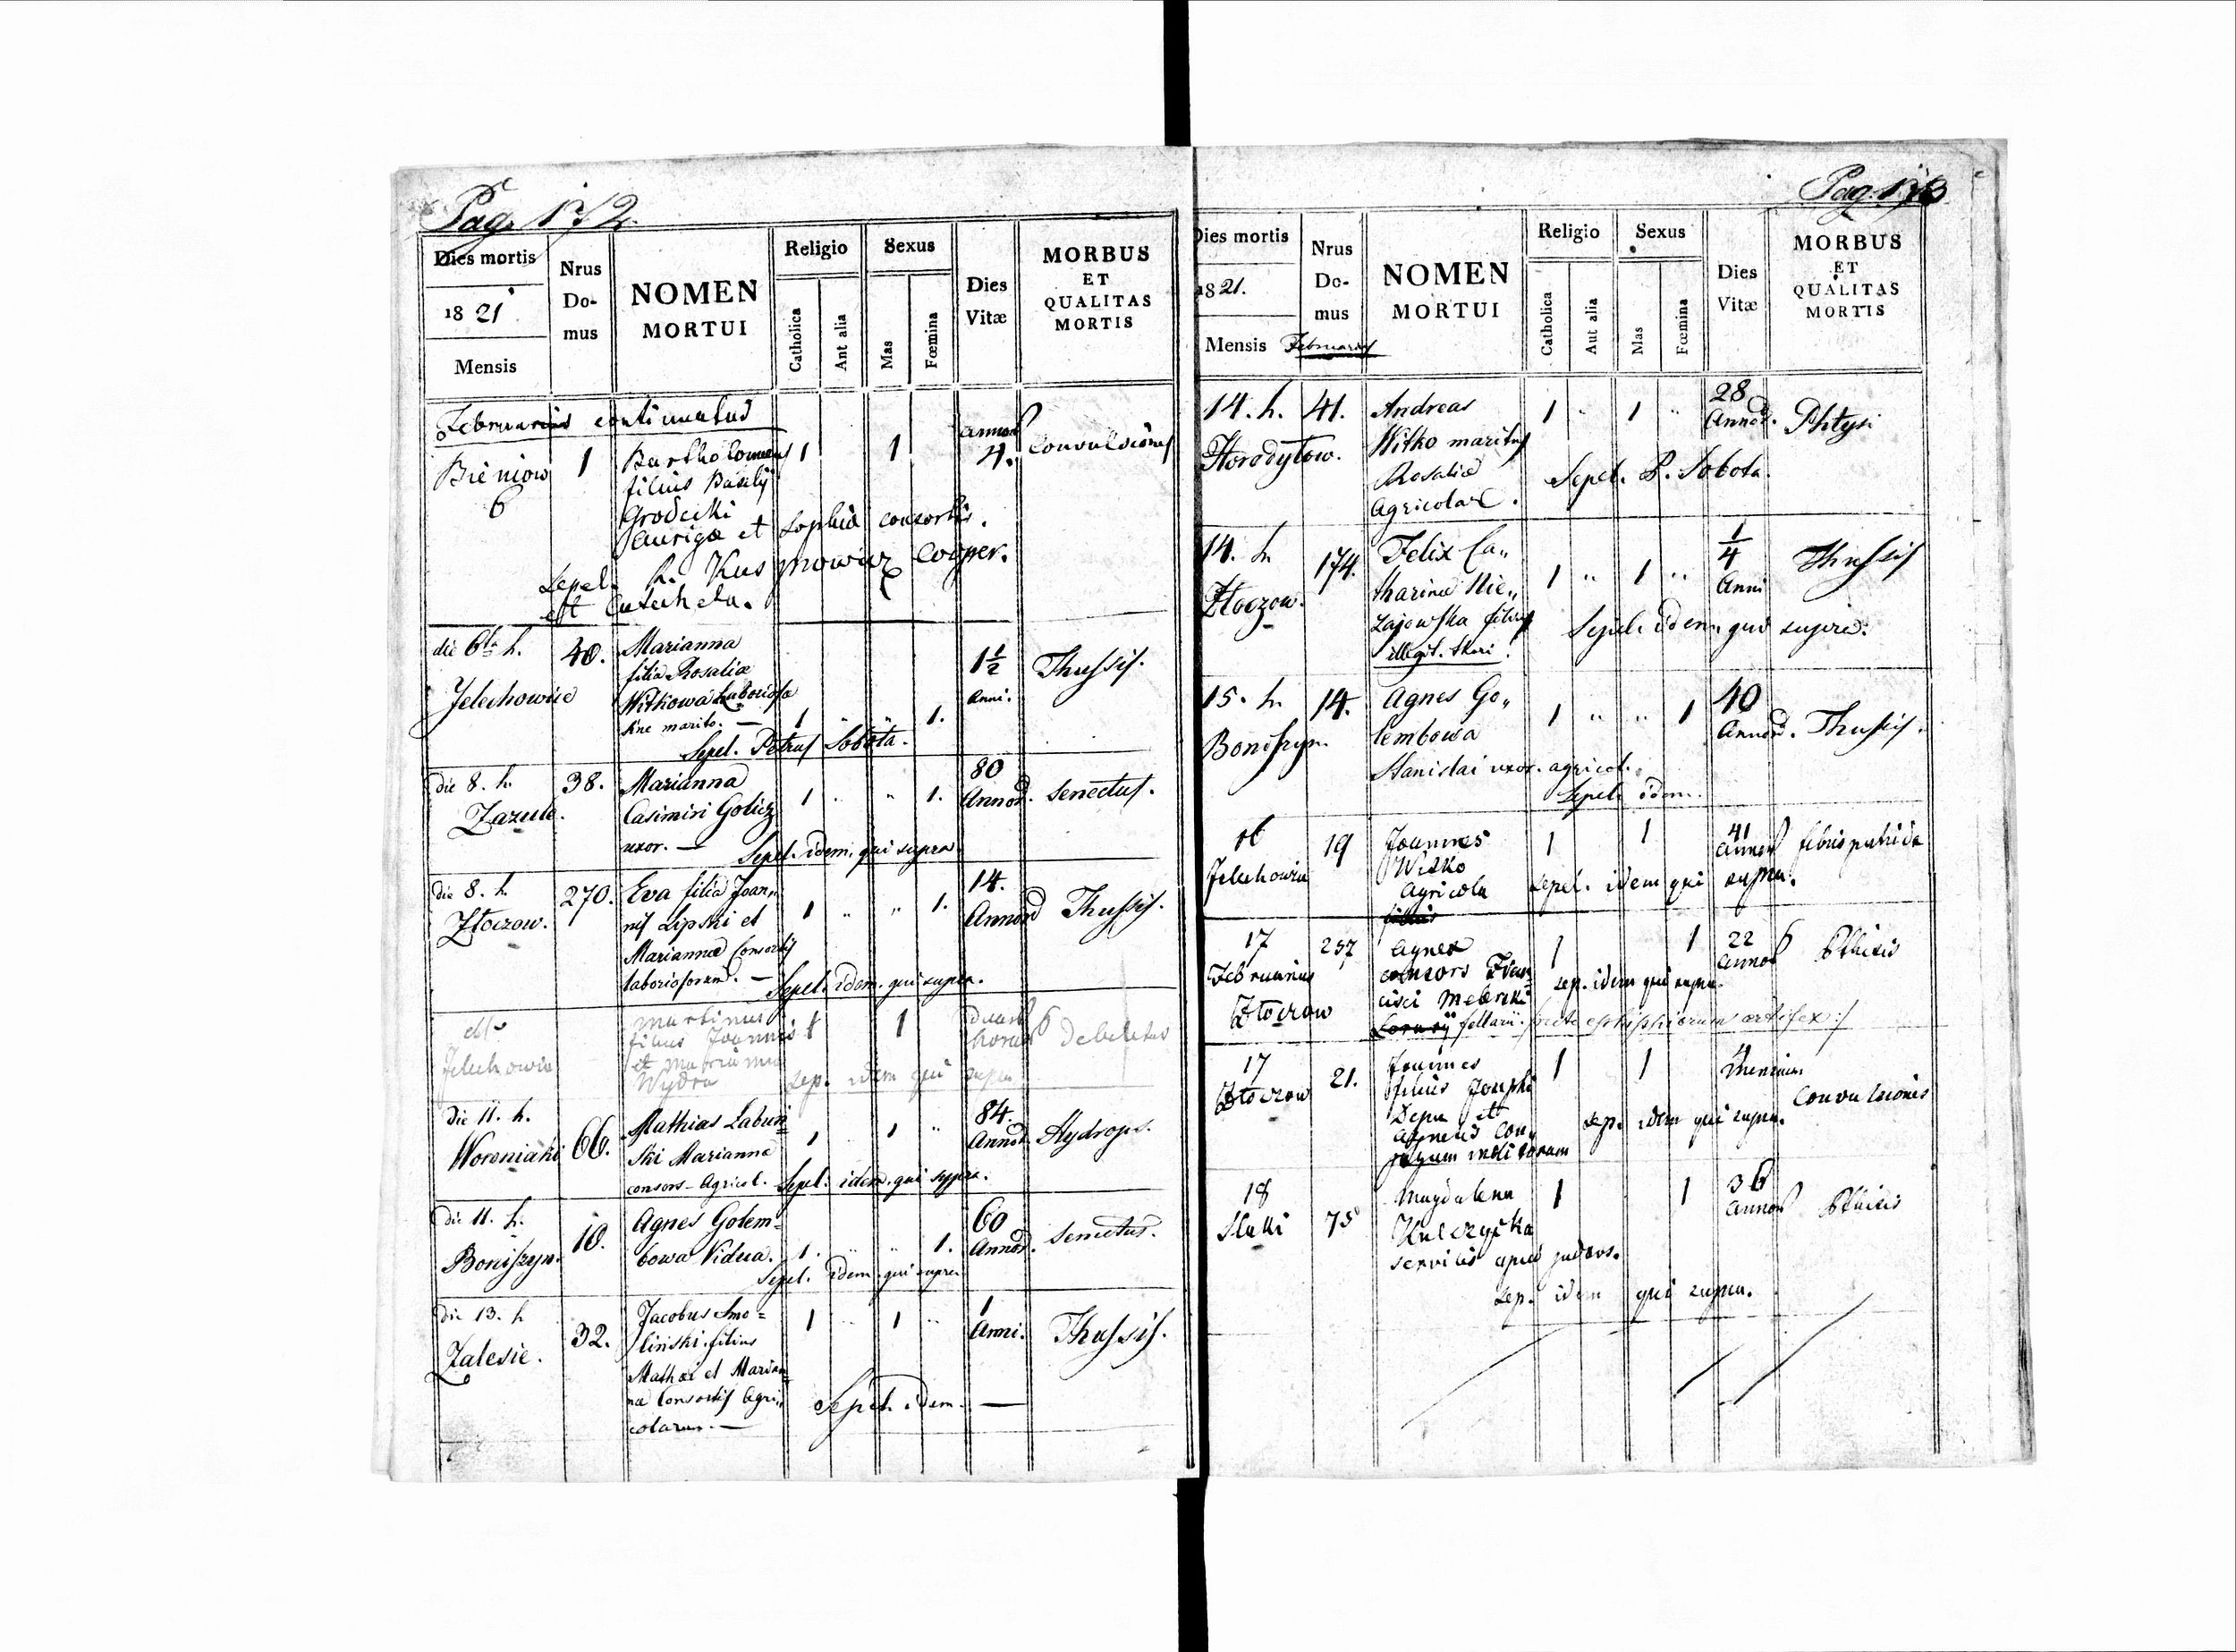 Pag. 172.
Dies mortis
1821
Mensis
Nrus
Do-
mus
NOMEN
MORTUI
Religio
Catholica
Aut alia
Sexus
Mas
Fœmina
Dies
Vitæ
MORBUS
ET
QUALITAS
MORTIS
Februarius continuatus
Bieniow 1 Bartholomeus 1 1 annor 4. Convulsiones
6 filius Basilij
Grodecki
Aurigæ et Sophia consortis.
Sepel. Kusmowicz Cooper.
est Catecheta.
die 6ta h. 40. Marianna 1½ Thussis.
Jelechowice filia Rosaliæ Anni.
Witkowa Laboriosa
sine marito. — 1 " " 1.
Sepel. Petrus Sobota.
die 8. h. 38. Marianna 80
Zazule. Casimiri Golicz 1 " " 1. Annor. Senectus.
uxor. — Sepel. idem. qui supra
die 8. h. 270. Eva filia Joan- 14.
Złoczow. nis Lipski et 1 " " 1. Annor Thussis.
Mariannæ Consortis
laboriosorum. — Sepel. idem. qui supra.
Martinus 1 1
Jelechowice filius Joannis horar Debilitas
et Marianna
Wydra sep. idem qui supra
die 11. h. 66. Mathias Labuń= 84.
Woroniaki ski Marianna 1 " 1 " Annor. Hydrops.
consors - Agricol. Sepel. idem. qui supra.
die 11. h. 10. Agnes Golem= 60
Boniszyn. bowa Vidua. 1. " " 1. Annor. Senectus.
Sepel. idem qui supra
die 13. h 32. Jacobus Smo= 1 " 1 " 1
Zalesie. liński filius Anni. Thussis.
Mathæi et Marian=
næ Consortis Agri,,
colarum. — Sepel. idem. —
Pag. 173
Dies mortis
1821.
Mensis Februarius
Nrus
Do-
mus
NOMEN
MORTUI
Religio
Catholica
Aut alia
Sexus
Mas
Fœmina
Dies
Vitæ
MORBUS
ET
QUALITAS
MORTIS
14. h. 41. Andreas 1 " 1 " 28 Annor. Phtysi
Horodyłow. Witko maritus
Rosaliæ Sepel. P. Sobota.
Agricola.
14. h. 174. Felix Ca,, 1 " 1 " ¼ Anni Thussis
Złoczow. tharinæ Nie,,
zajowska filius Sepel. idem qui supra.
illegit. thori.
15. h. 14. Agnes Go,, 1 " " 1 40
Boniszyn. lembowa Annor. Thussis.
Stanislai uxor. agricol.
Sepel. idem.
16 19 Joannes 1 1 41 febris putrida
Jelechowice Witko annor
Agricola sepel. idem qui supra.
17 257 Agnes 1 1 22 Phtisis
Februarius consors Fran annor
Złoczow cisci sep. idem qui supra.
17 21. Joannes 1 1
Złoczow filius Josephi Convulsiones
Depa et sep. idem qui supra.
Agnetis Con,,
jugum inditorum
18 75 Magdalena 1 1 36 Phtisis
Kulczycka annor
servilis apud judæos.
sep. idem qui supra.